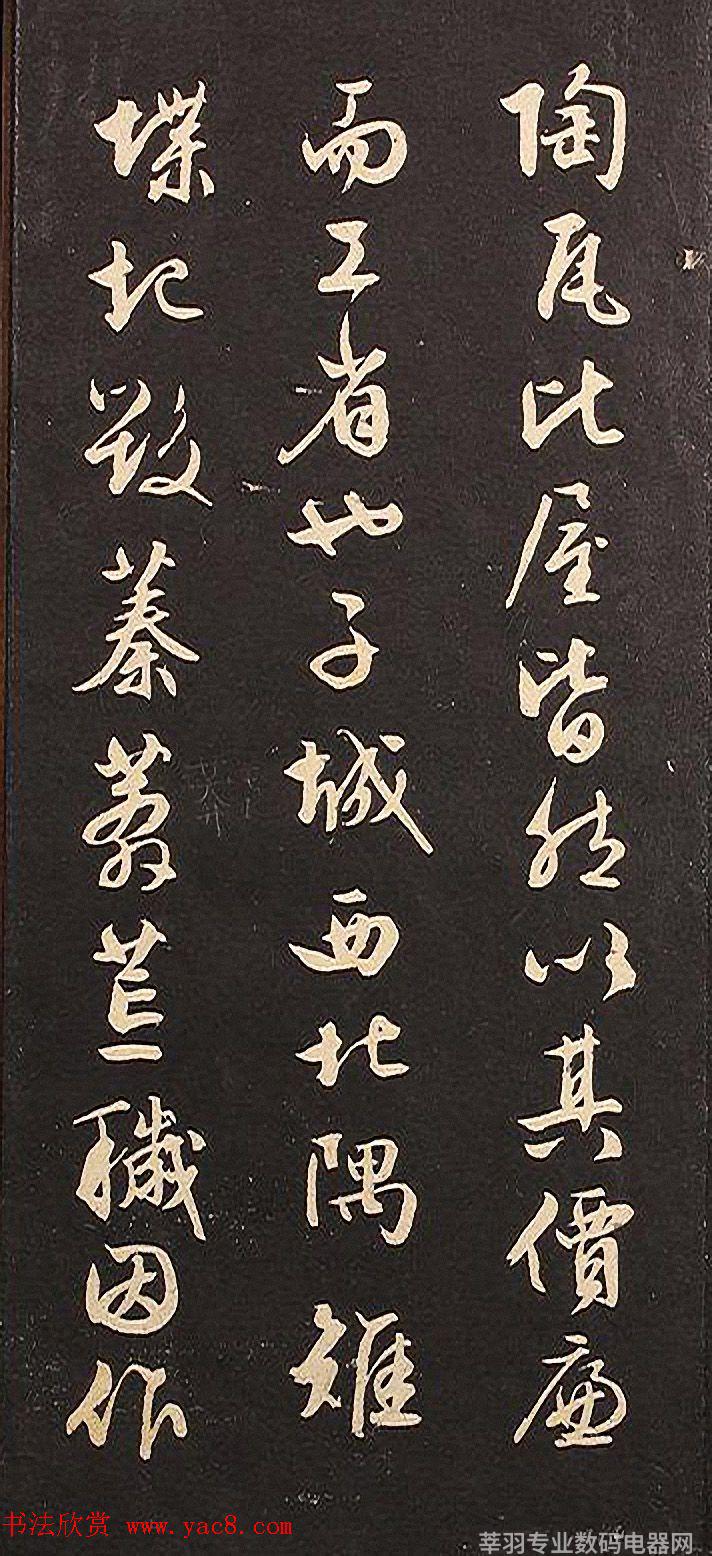 陶瓦比屋皆然以其價廉
而工省也子城西北隅雉
堞圮毀蓁莽荒穢因作
书法欣赏 www.yac8.com
莘羽专业数码电器网